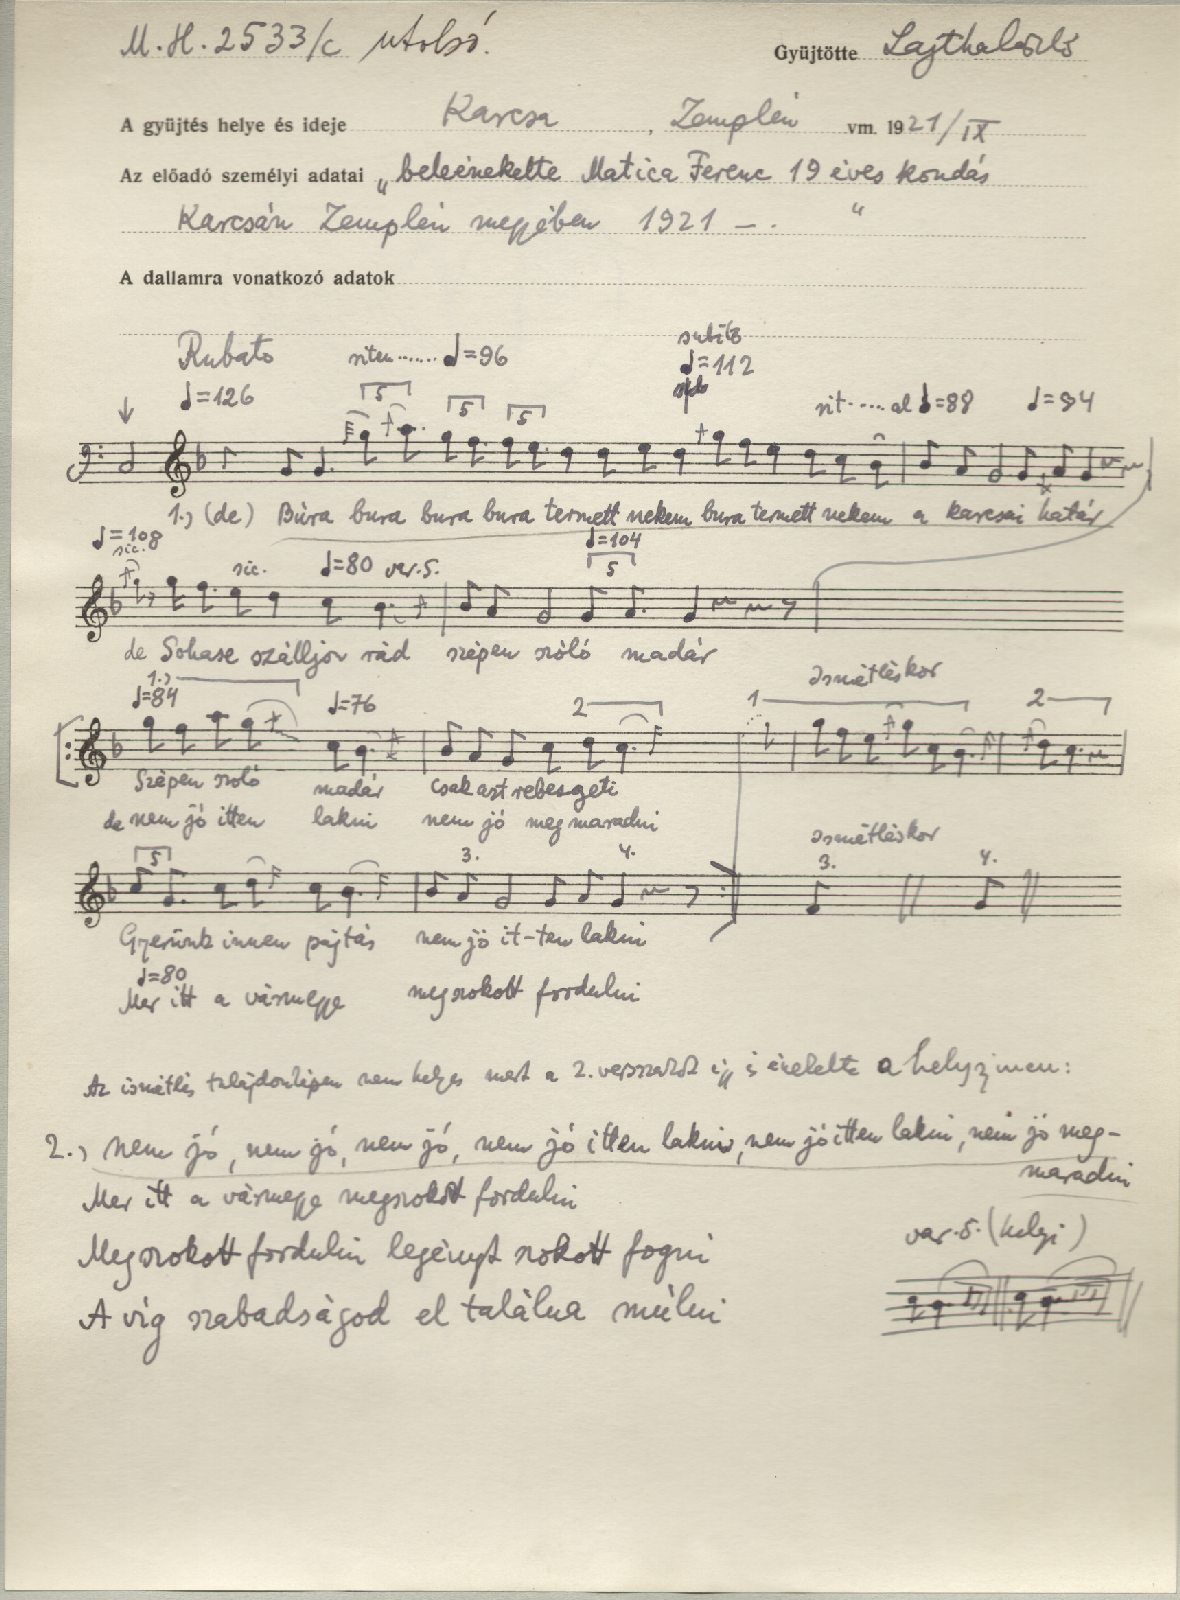 M.H. 2533/c utolsó.
Gyüjtötte Lajtha László
A gyüjtés helye és ideje Karcsa, Zemplén vm. 1921/IX
Az előadó személyi adatai „beleénekelte Matica Ferenc 19 éves kondás
Karcsán Zemplén megyében 1921 – . "
A dallamra vonatkozó adatok
Rubato riten....... ♩=96 subito
♩=126 ♩=112
5 5 5 rit..... al ♩=88 ♩=84
1.) (de) Búra bura bura bura termett nekem bura termett nekem a karcsai határ
♩=108 ♩=104
sic. sic. ♩=80 var. 5. 5
de Sohase szálljon rád szépen szóló madár
1.) Ismétléskor
♩=84 ♩=76 2 1 2
Szépen szóló madár csak azt rebesgeti
de nem jó itten lakni nem jó megmaradni
Ismétléskor
5 3. 4. 3. 4.
Gyerünk innen pajtás nem jó it-ten lakni
♩=80
Mer itt a vármegye megszokott fordulni
Az ismétlés tulajdonképen nem helyes mert a 2. versszakot így is énekelte a helyszínen:
2.) nem jó, nem jó, nem jó, nem jó itten lakni, nem jó itten lakni, nem jó meg-
maradni
Mer itt a vármegye megszokott fordulni
Megszokott fordulni legényt szokott fogni
A víg szabadságod el találna múlni
var. 5. (helyi)